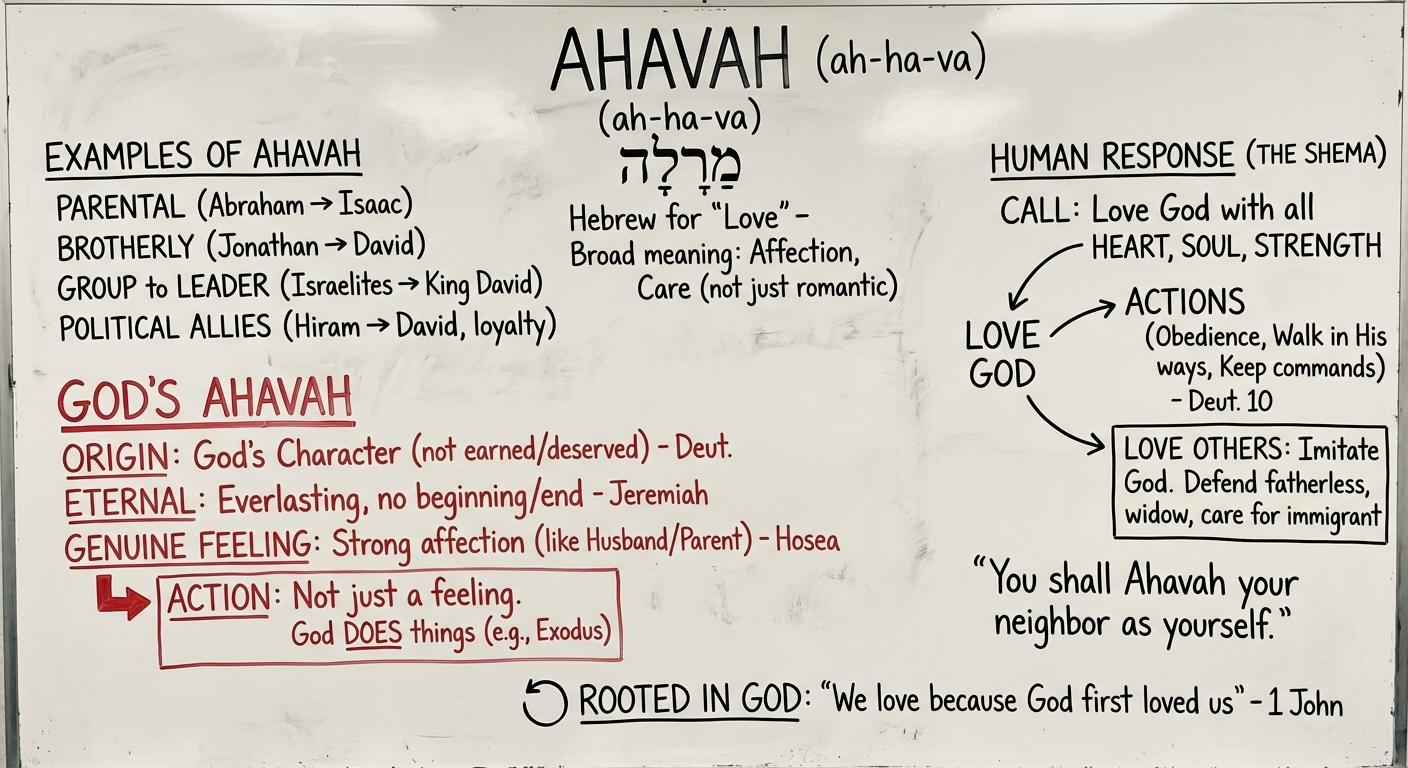 AHAVAH (ah-ha-va)
(ah-ha-va)
מַרָלָה
Hebrew for “Love” –
Broad meaning: Affection,
Care (not just romantic)
EXAMPLES OF AHAVAH
PARENTAL (Abraham → Isaac)
BROTHERLY (Jonathan → David)
GROUP to LEADER (Israelites → King David)
POLITICAL ALLIES (Hiram → David, loyalty)
GOD'S AHAVAH
ORIGIN: God's Character (not earned/deserved) – Deut.
ETERNAL: Everlasting, no beginning/end – Jeremiah
GENUINE FEELING: Strong affection (like Husband/Parent) – Hosea
ACTION: Not just a feeling.
God DOES things (e.g., Exodus)
HUMAN RESPONSE (THE SHEMA)
CALL: Love God with all
HEART, SOUL, STRENGTH
LOVE
GOD
ACTIONS
(Obedience, Walk in His
ways, Keep commands)
– Deut. 10
LOVE OTHERS: Imitate
God. Defend fatherless,
widow, care for immigrant
“You shall Ahavah your
neighbor as yourself.”
ROOTED IN GOD: “We love because God first loved us” – 1 John